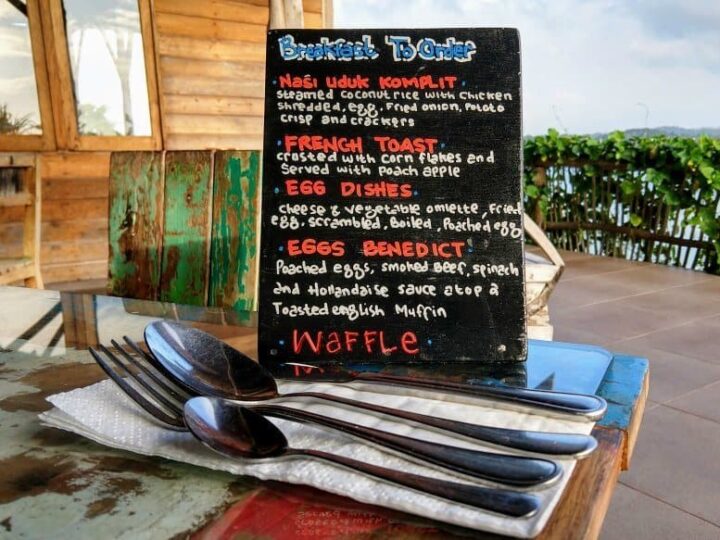 Breakfast To Order
Nasi uduk KOMPLIT
steamed coconut rice with chicken
shredded, egg, Fried onion, Potato
crisp and crackers
FRENGH TOAST
crosted with corn flakes and
Served with poach apple
EGG DISHES
cheese & vegetable omlette, Fried
egg, scrambled, Boiled, Poached egg
EGGS BENEDICT
Poached eggs, smoked Beef, spinach
and Hollandaise sauce atop a
Toasted english Muffin
WaFFLe